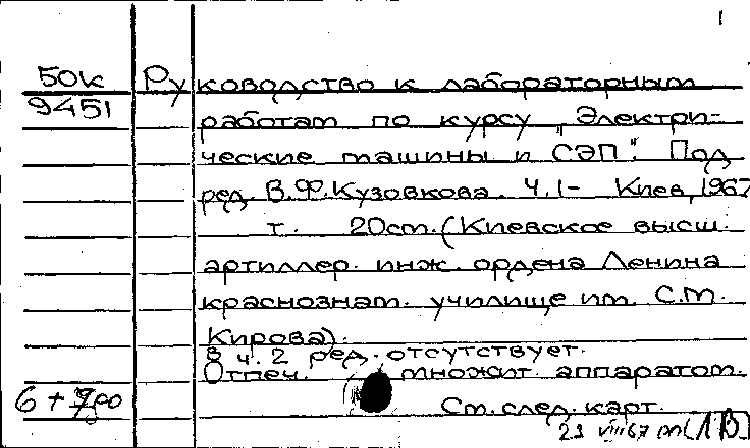 1
50к
9451
Руководство к лабораторным
работам по курсу „Электри-
ческие машины и СЭП". Под
ред. В.Ф.Кузовкова. Ч.1- Киев, 1967
т. 20см. (Киевское высш.
артиллер. инж. ордена Ленина
краснознам. училище им. С.М.
Кирова).
В ч. 2 ред. отсутствует.
Отпеч. множит. аппаратом.
6 +
См. след. карт.
23 VIII 67